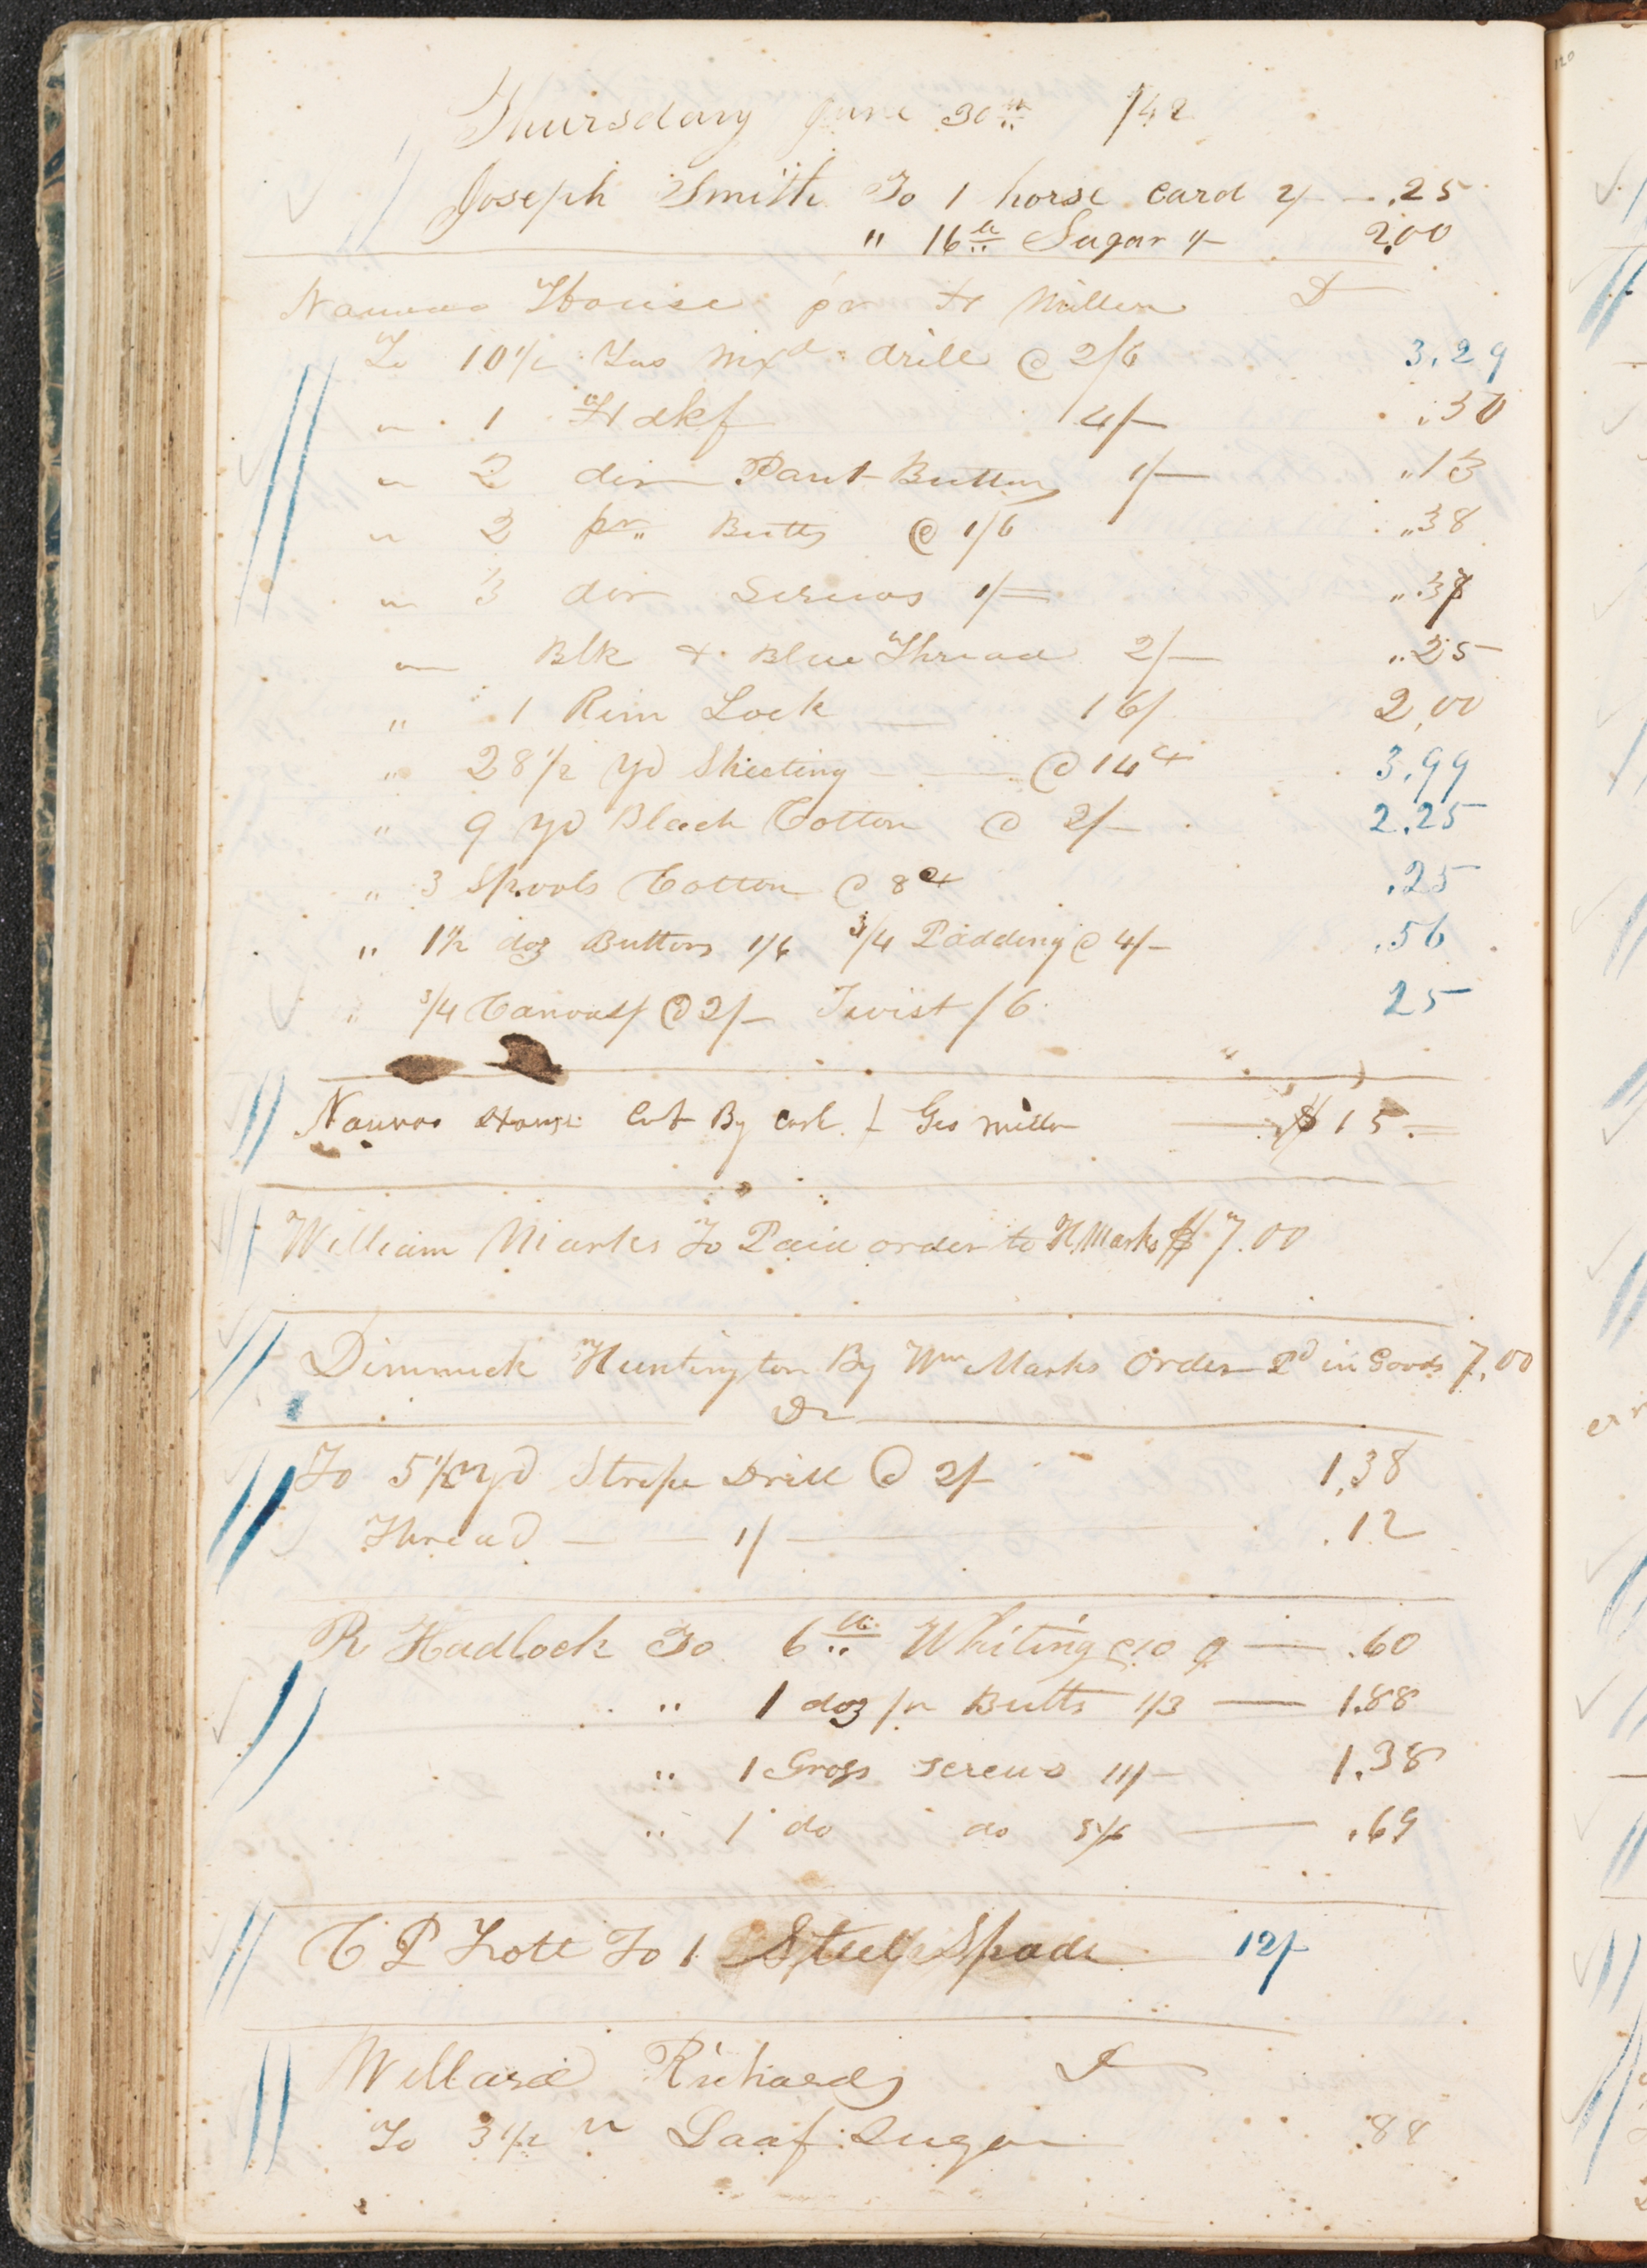 Thursday June 30th /42
Joseph Smith To 1 horse card 2/– .25
" 16 lb Sugar 1/– 2.00
Nauvoo House pr Miller Dr
To 10 1/2 Yds Mxd drill @ 2/6 3.29
" 1 Hdkf 4/– .50
" 2 doz Pant Buttons 1/– "13
" 2 pr" Butts @ 1/6 "38
" 3 doz Screws 1/= "38
" Blk & Blue Thread 2/– "25
" 1 Rim Lock 16/ 2,00
" 28 1/2 yd Sheeting @ 14 cts 3.99
" 9 yd Bleach Cotton @ 2/– 2.25
" 3 Spools Cotton @ 8 ct .25
" 1 1/2 doz Buttons 1/6 3/4 Padding @ 4/– .56
" 3/4 Canvass @ 2/– Twist /6 25
Nauvoo House By cash Geo Miller $15.=
William Marks To Paid order to H. Marks $7.00
Dimmick Huntington By Wm Marks Order Pd in Goods 7.00
Dr
To 5 1/2 yd Stripe Drill @ 2/– 1,38
Thread 1/– .12
R Hadlock To 6 lb Whiting @ 10 .60
" 1 doz pr Butts 1/3 1.88
" 1 Gross screws 11/– 1.38
" 1 do do 5/6 .69
C P Lott To 1 Steel Spade 12/–
Willard Richards Dr
To 3 1/2 lb Loaf Sugar .88